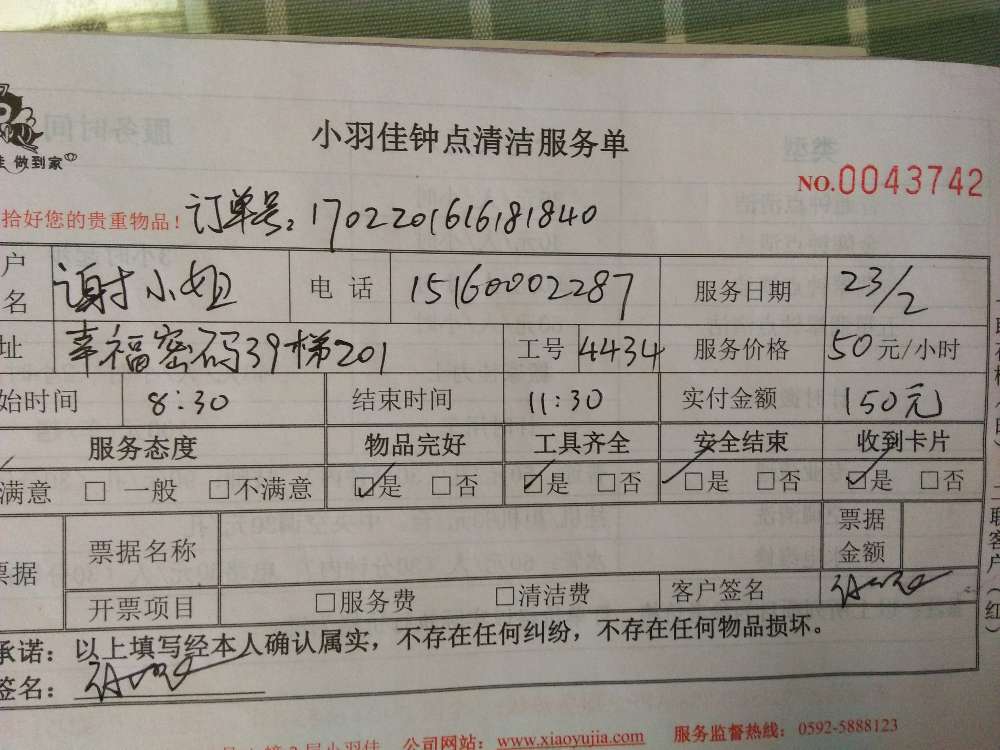 小羽佳钟点清洁服务单
做到家
NO.0043742
拾好您的贵重物品! 订单号:1702201616181840
户名 谢小姐 电 话 15160002287 服务日期 23/2
址 幸福密码39梯201 工号 4434 服务价格 50元/小时
始时间 8:30 结束时间 11:30 实付金额 150元
服务态度 物品完好 工具齐全 安全结束 收到卡片
满意 □ 一般 □不满意 ☑是 □否 ☑是 □否 ☑是 □否 ☑是 □否
票据 票据名称 票据金额
开票项目 □服务费 □清洁费 客户签名
承诺:以上填写经本人确认属实,不存在任何纠纷,不存在任何物品损坏。
签名:
公司网站:www.xiaoyujia.com 服务监督热线:0592-5888123